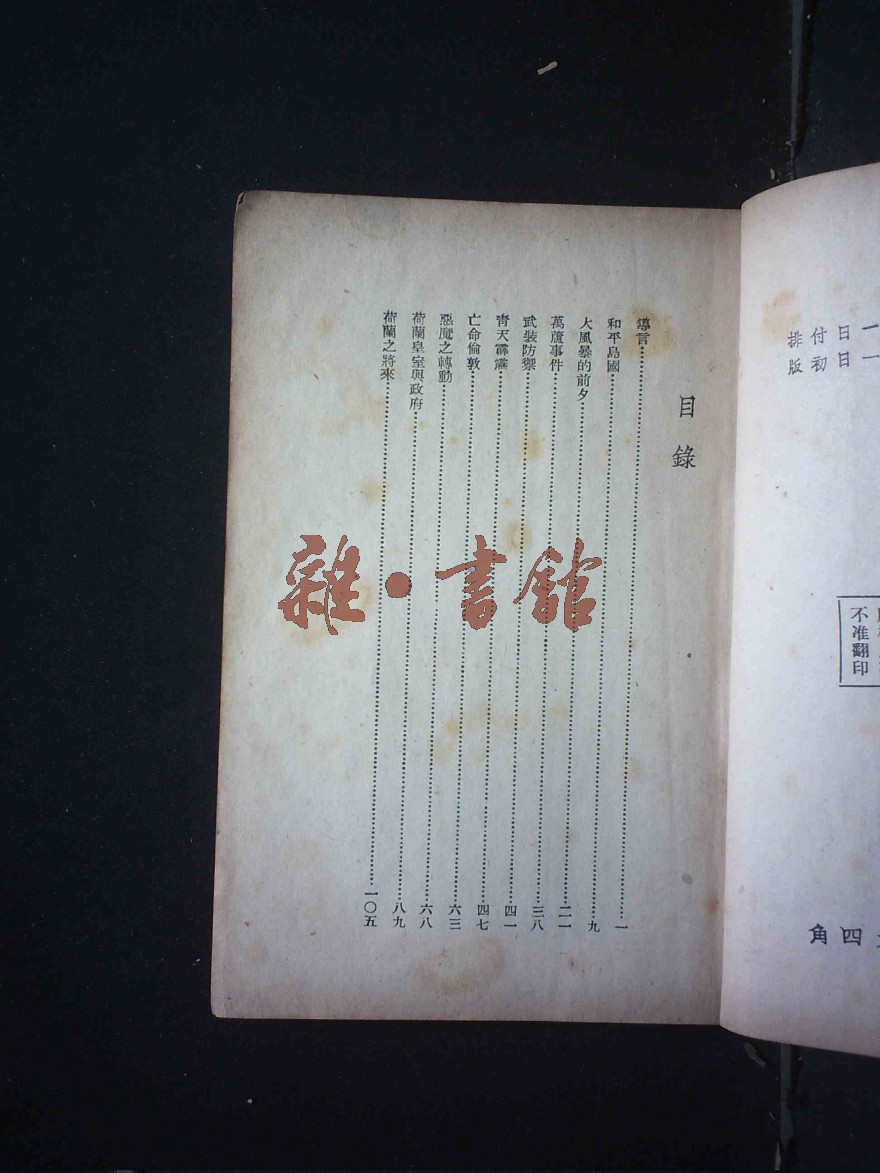 目錄
導言……一
和平島國……九
大風暴的前夕……二一
萬蘆事件……三八
武裝防禦……四一
青天霹靂……四七
亡命倫敦……六三
惡魔之轉動……六八
荷蘭皇室與政府……八九
荷蘭之將來……一〇五
雜·書館
一日付排
一日初版
不准翻印
四角